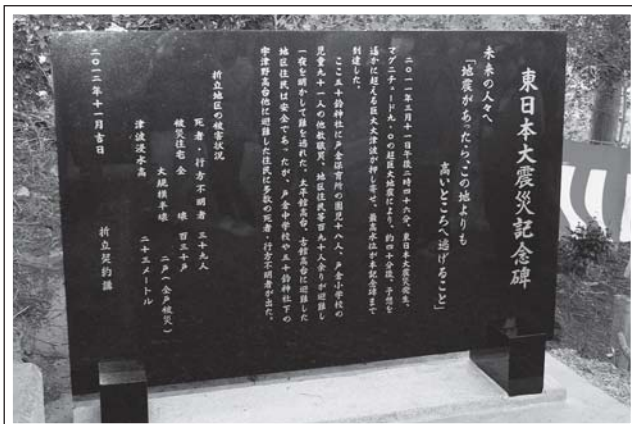 東日本大震災記念碑
未来の人々へ
「地震があったら、この地よりも
高いところへ逃げること」
二〇一一年三月十一日午後二時四十六分、東日本大震災発生。
マグニチュード九・〇の超巨大地震により、約四十分後、予想を
遥かに超える巨大大津波が押し寄せ、最高水位が本記念碑まで
到達した。
ここ五十鈴神社に戸倉保育所の園児十八人、戸倉小学校の
児童九十一人の他教職員、地区住民等百九十人余りが避難し
一夜を明かして難を逃れた。太平館高台、古館高台に避難した
地区住民は安全であったが、戸倉中学校や五十鈴神社下の
宇津野高台他に避難した住民に多数の死者・行方不明者が出た。
折立地区の被害状況
死者・行方不明者 三十九人
被災住宅 全 壊 百三十戸
大規模半壊 二戸(全戸被災)
津波浸水高 二十三メートル
二〇一二年十一月吉日 折立契約講